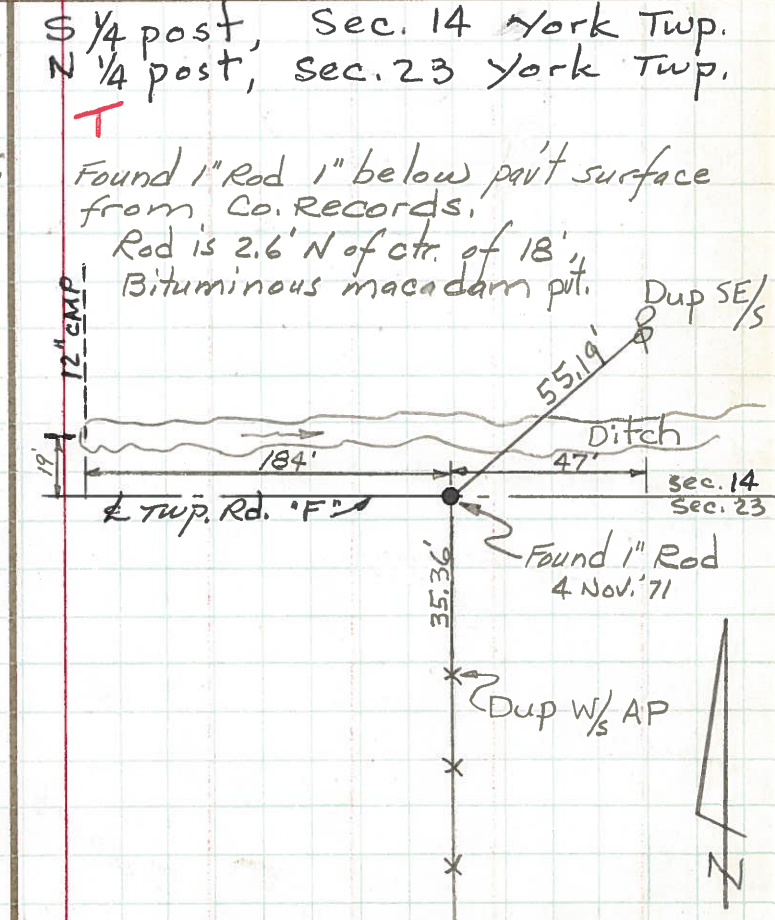 S 1/4 post, Sec. 14 York Twp.
N 1/4 post, Sec. 23 York Twp.
T
Found 1" Rod 1" below pav't surface
from Co. Records.
Rod is 2.6' N of ctr. of 18',
Bituminous macadam pvt.
12" CMP
Dup SE/s
55.19'
Ditch
19'
184'
47'
℄ Twp. Rd. "F"
Sec. 14
Sec. 23
35.36'
Found 1" Rod
4 Nov. '71
Dup W/s AP
N